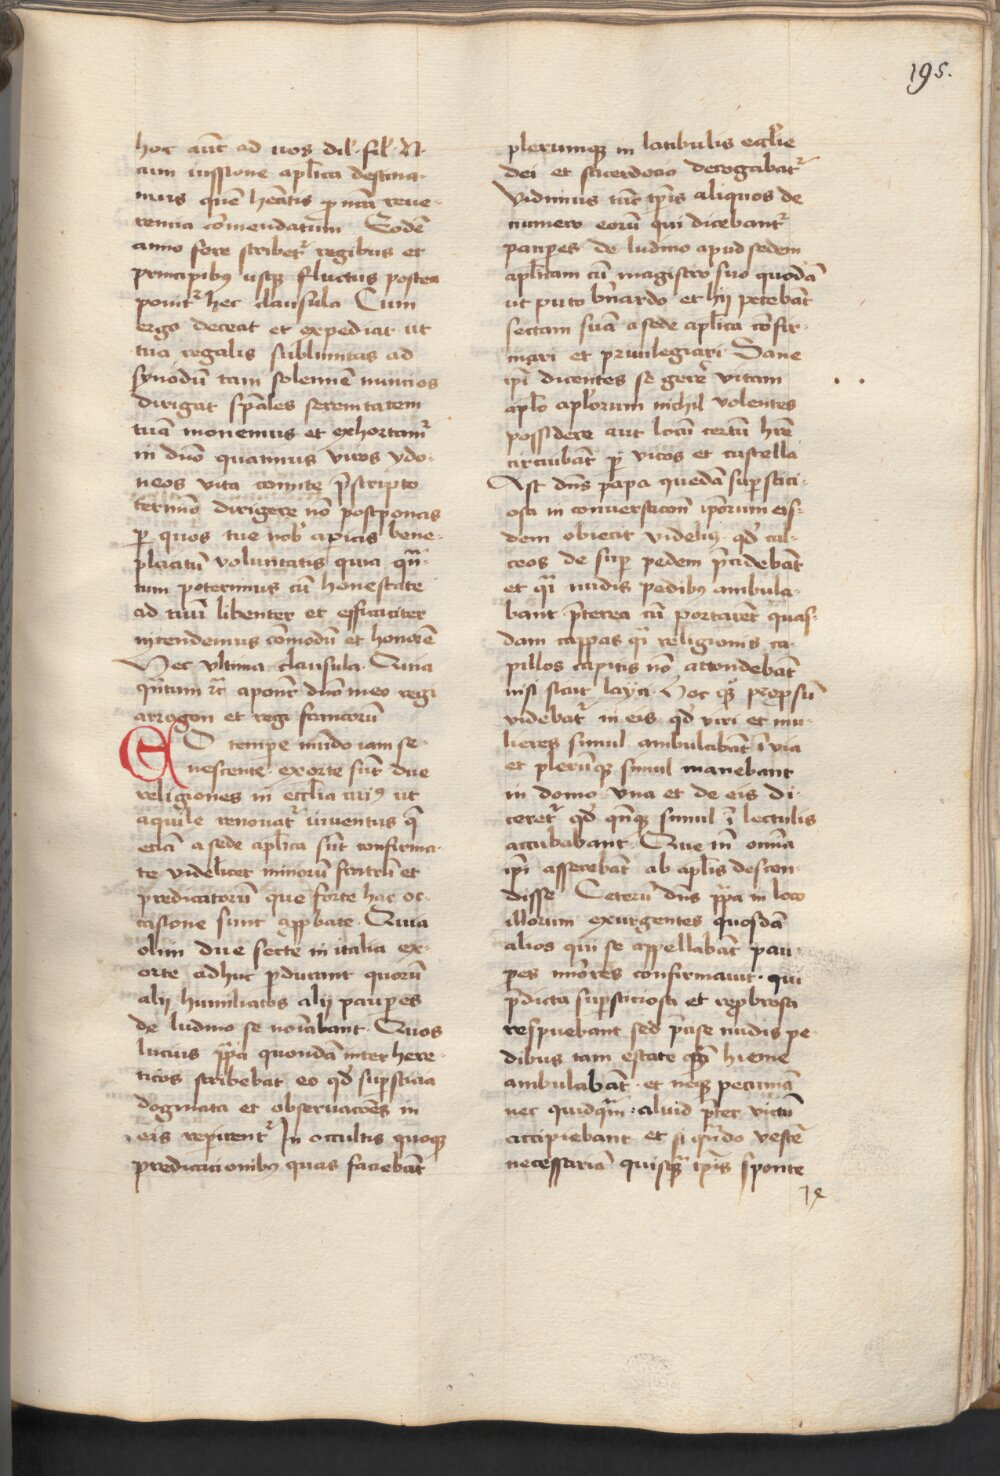 195.
hoc aūt ad uos dil̄· fil̄· N·
cum iussione aplīca destina-
mus quē hēatis ꝑ nrā reue-
rentia cōmendatum Eodē
anno fere scribetr̄ regibus et
principibꝰ usqꝫ fluctus postea
ponitr̄ hec clausula Cum
ergo deceat et expediat ut
tua regalis sublimitas ad
synodū tam solennē nuncios
dirigat spāles serenitatem
tuā monemus et exhortamr̄
in dnō quatinus viros ydo-
neos vita comite p̄scripto
termīo dirigere nō postponatis
ꝑ quos tue nob̄ aꝑiatis bene-
placitū voluntatis quia qn̄-
tum poterimus cū honestate
ad tuū libenter et efficaciter
intendemus cōmodū et honorē
Hec vltima clausula· Quia
arragon et regi francorū
EO tempe mūdo iam se-
nescente· exorte sūt due
religiones in eccl̄ia cuiꝰ ut
aquile renouatr̄ iuuentus q̄
etiā a sede aplīca sūt confirma-
te videlicet minorū fratrū et
predicatorū que forte hac oc-
casione sunt apꝓbate· Quia
olim due secte in italia ex-
orte adhuc ꝑdurant quorū
alij humiliatos alij pauꝑes
de luduno se noīabant· Quos
lucius pp̄a quondā inter here-
ticos scribebat eo qd̄ suꝑsticia
dogmata et obseruacōes in
eis reꝑirentr̄ In occultis quoqꝫ
predicacionibꝰ quas faciebāt
plerumqꝫ in latibulis eccl̄ie
dei et sacerdocio derogabatr̄
Vidimus tūc tp̄is aliquos de
numero eorū qui dicebantr̄
pauꝑes de luduno apud sedem
aplīcam cū magistro suo quodā
ut puto bn̄ardo et hij petebāt
sectam suā a sede aplīca confir-
mari et priuilegiari Sane
ip̄i dicentes se gere̅ vitam
aplōrum nichil volentes
possidere aut locū certū hr̄e
circuibāt ꝑ vicos et castella
Ast dn̄s papa quedā suꝑstici-
osa in conuersacoē ip̄orum eis-
dem obiecit videliꝫ· qd̄ cal-
ceos de suꝑ pedem p̄cidebāt
et qͣi nudis pedibꝰ ambula-
bant p̄terea cū portarēt quas-
dam cappas qͣi religionis ca-
pillos capitis nō attondebāt
nisi sicut layci· Hoc qꝫ
videbatr̄ in eis qd̄ viri et mu-
lieres simul ambulabāt ī via
et plerūqꝫ simul manebant
in domo vna et de eis di-
ceretr̄ qd̄ qn̄qꝫ simul ī lectulis
accubabant· Que tn̄ omīa
ip̄i asserebāt ab aplīs descen-
disse· Ceterū dn̄s pp̄a in loco
illorum exurgentes quosdā
alios qui se appellabāt pau-
ꝑes mīores confirmauit· qui
p̄dicta suꝑsticiosa et reꝓbrosa
respuebant sed p̄cise nudis pe-
dibus tam estate qͣm hieme
ambulabāt· et neqꝫ pecuniā
nec quidqͣm· aliud p̄ter victū
accipiebant et si qn̄do vestē
necessariā quisqͣ ip̄is sponte